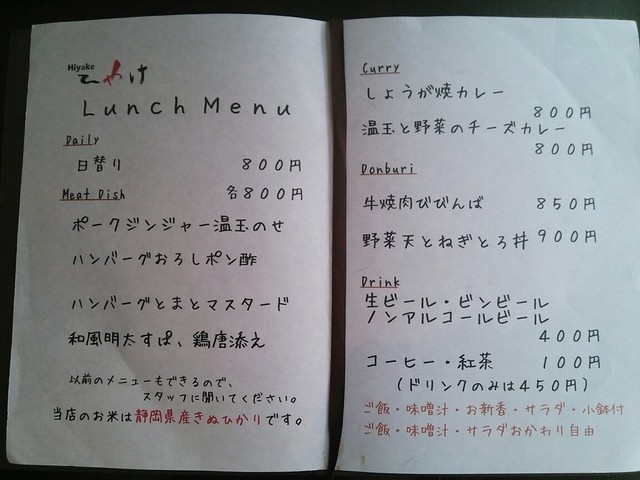 Hiyake
ひやけ
Lunch Menu
Daily
日替り 800円
Meat Dish 各800円
ポークジンジャー温玉のせ
ハンバーグおろしポン酢
ハンバーグとまとマスタード
和風明太すぱ、鶏唐添え
以前のメニューもできるので、
スタッフに聞いてください。
当店のお米は静岡県産きぬひかりです。
Curry
しょうが焼カレー
800円
温玉と野菜のチーズカレー
800円
Donburi
牛焼肉びびんば 850円
野菜天とねぎとろ丼 900円
Drink
生ビール・ビンビール
ノンアルコールビール
400円
コーヒー・紅茶 100円
(ドリンクのみは450円)
ご飯・味噌汁・お新香・サラダ・小鉢付
ご飯・味噌汁・サラダおかわり自由